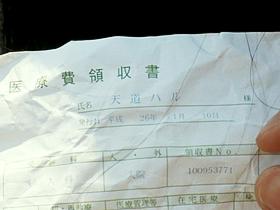 医療費領収書
氏名 天道ハル 様
発行日 平成 26年 1月 10日
科 入・外 領収書No.
入院 100953771
医療管理等 在宅医療